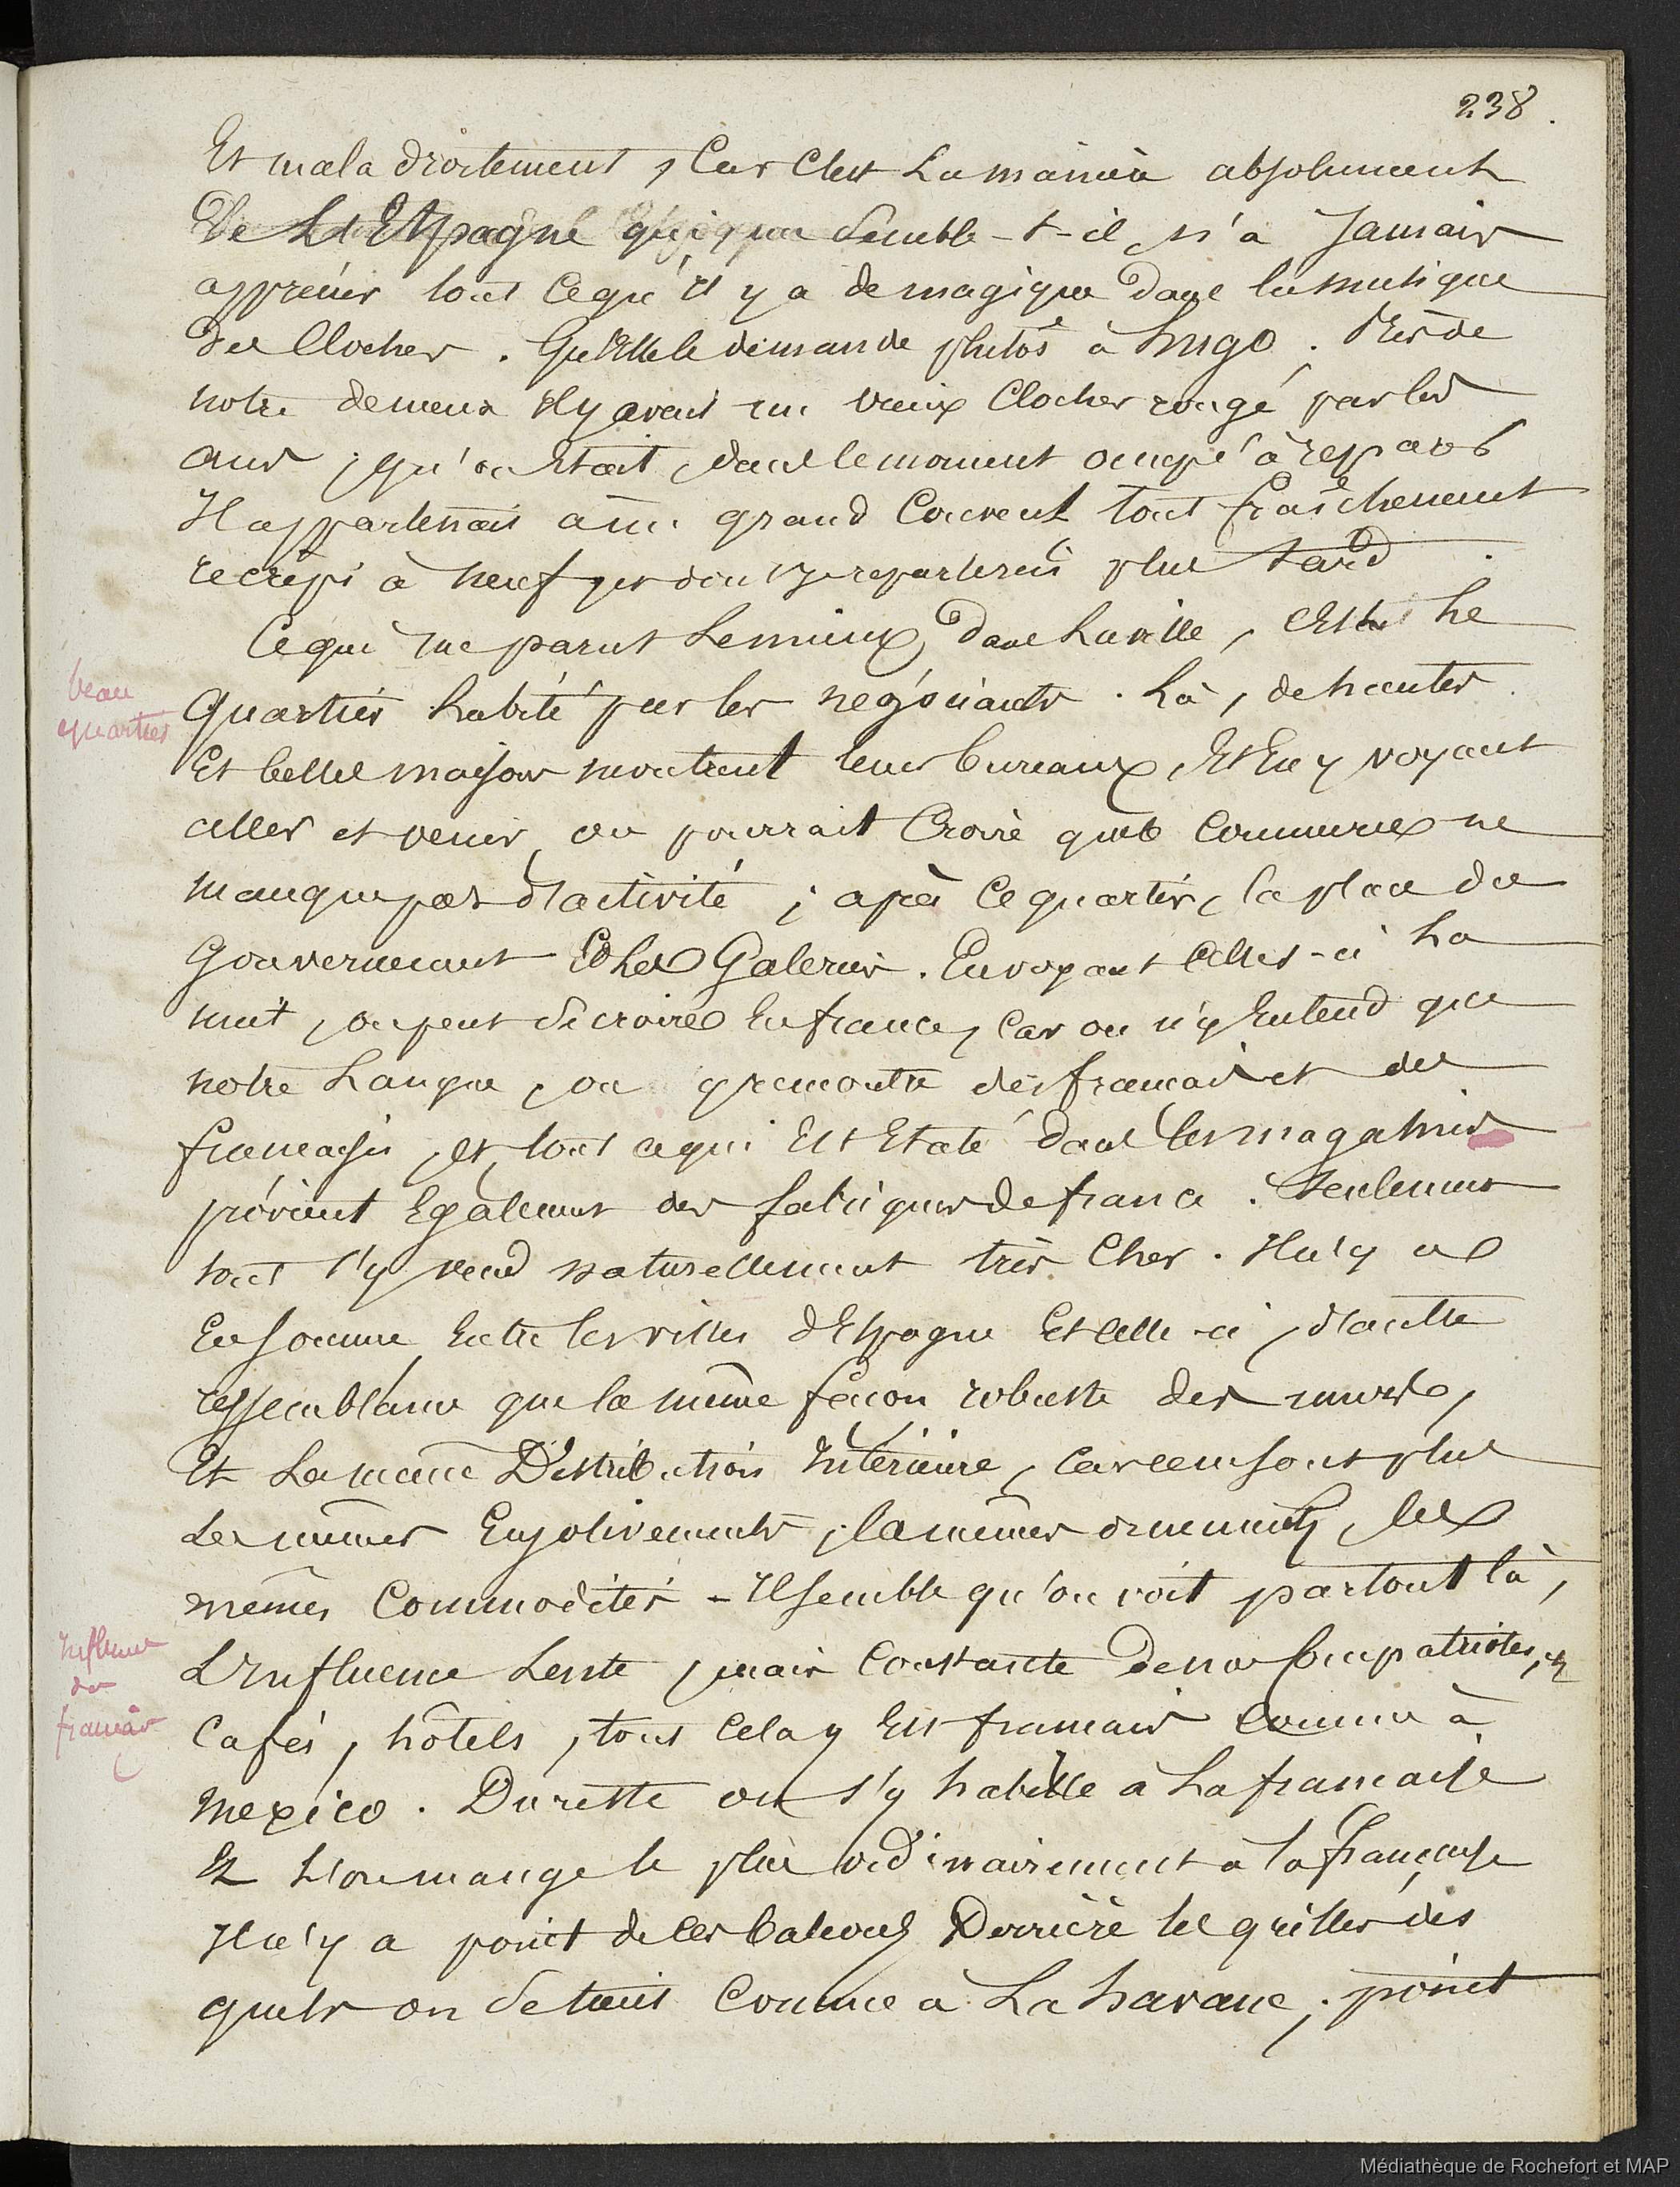 238.
Et maladroitement, Car C'est La manière absolument
De L'Espagne qui semble-t-il n'a Jamais
apprécié tout Ce qu'il y a de magique dans la musique
des Clocher. Qu'Elle le demande plutôt à hugo. Près de
notre demeure Il y avait un vieux Clocher rongé par les
ans, qu'on Etait, dans le moment occupé à
Il appartenait à un grand Couvent tout fraîchement
recrépi à neuf et dont je reparlerai plus tard.
Ce qui me parut Le mieux Dans La ville, C'Est Le
beau
quartier
quartier habité par les négociants. Là, de hautes
Et belles maisons montrent leurs bureaux, Et En y voyant
aller et venir, on pourrait Croire que le Commerce ne
manque pas d'activité ; après Ce quartier, la place du
Gouvernement Et Les Galeries. En voyant Celles-ci La
nuit, on peut se croire En france, Car on n'y Entend que
notre Langue, on y rencontre des français et des
françaises, et tout ce qui Est Etalé dans les magasins
provient Egalement des fabriques de france. Seulement
tout s'y vend naturellement très Cher. Il n'y a
En somme Entre les villes d'Espagne Et Celle-ci, d'autre
ressemblance que la même façon robuste des murs,
Et La même Distribution Intérieure, Car ce ne sont plus
Les mêmes Enjolivements, les mêmes ornements, les
mêmes Commodités - Il semble qu'on voit partout là,
Influence
des
français
L'Influence Lente, mais Constante de nos Compatriotes, et
Cafés, hôtels, tout Cela y Est français Comme à
Mexico. Du reste on s'y habille à La française
Et L'on mange le plus ordinairement à la française
Il n'y a point de Ces balcons Derrière les grilles des
quels on se tient Comme à La havane ; point
Médiathèque de Rochefort et MAP